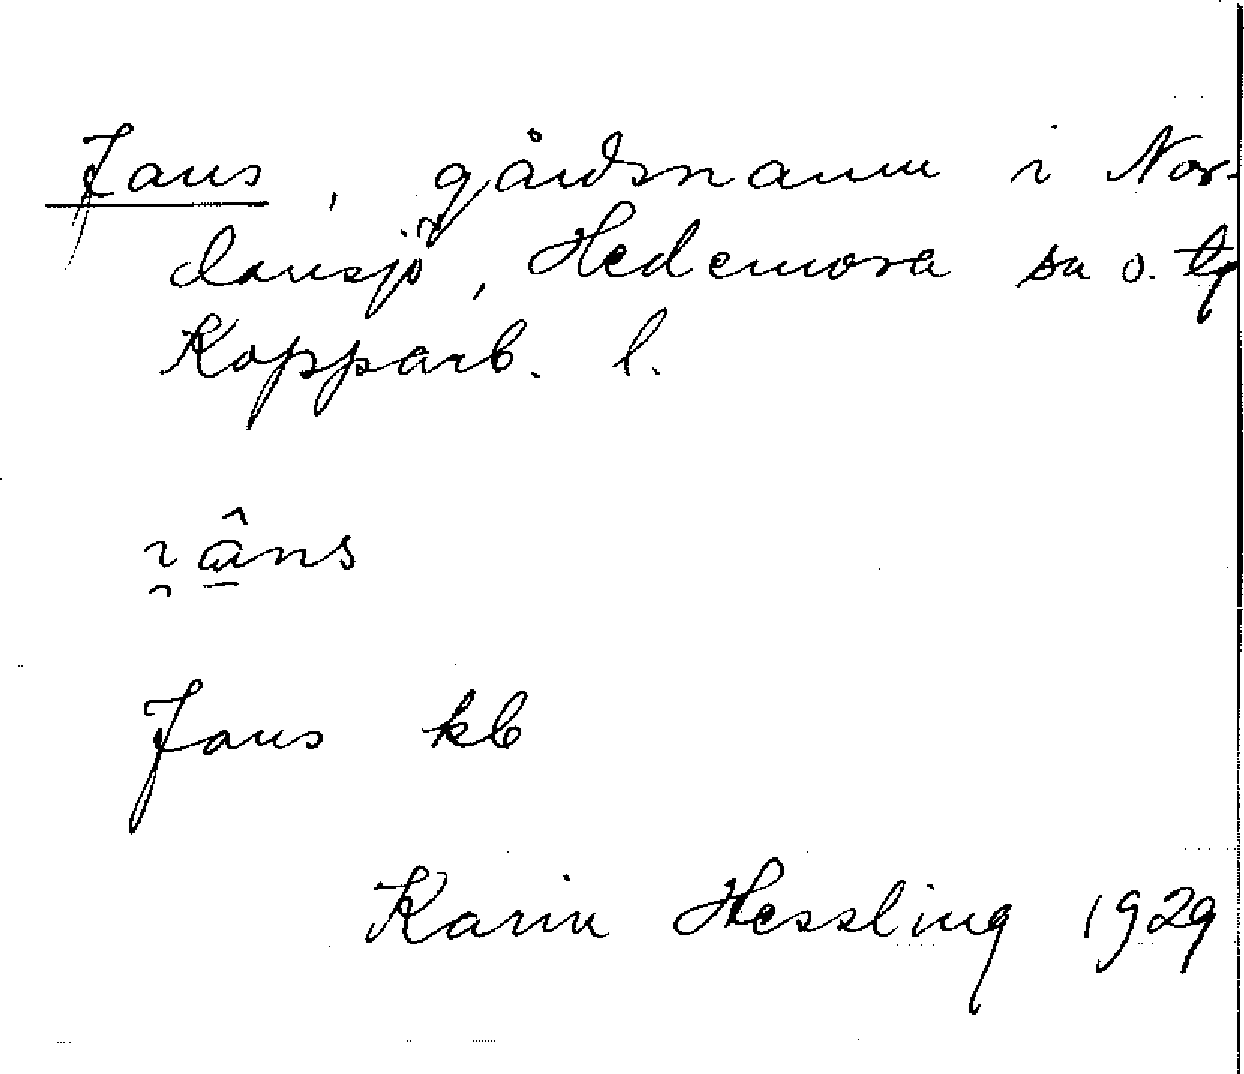 Jans, gårdsnamn i Nor-
dansjö, Hedemora sn o. tg
Kopparb. l.
i̯â̱ns
Jans kb
Karin Hessling 1929